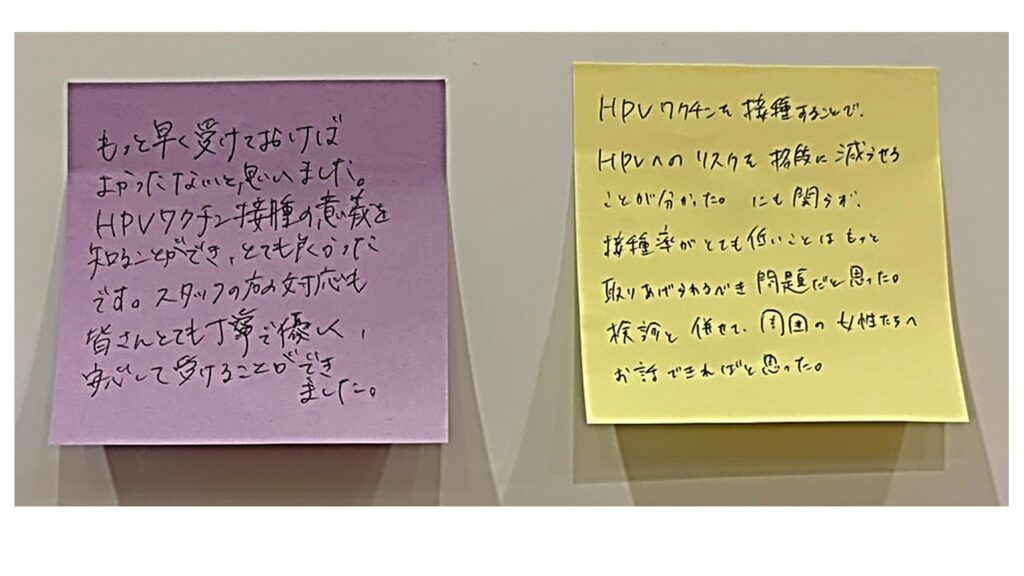 もっと早く受けておけば
よかったなぁと思いました。
HPVワクチン接種の意義を
知ることができ、とても良かった
です。スタッフの方の対応も
皆さんとても丁寧で優しく、
安心して受けることができ
ました。
HPVワクチンを接種することで、
HPVへのリスクを格段に減らせる
ことが分かった。にも関らず、
接種率がとても低いことはもっと
取りあげられるべき問題だと思った。
検診と併せて、周囲の女性たちへ
お話できればと思った。